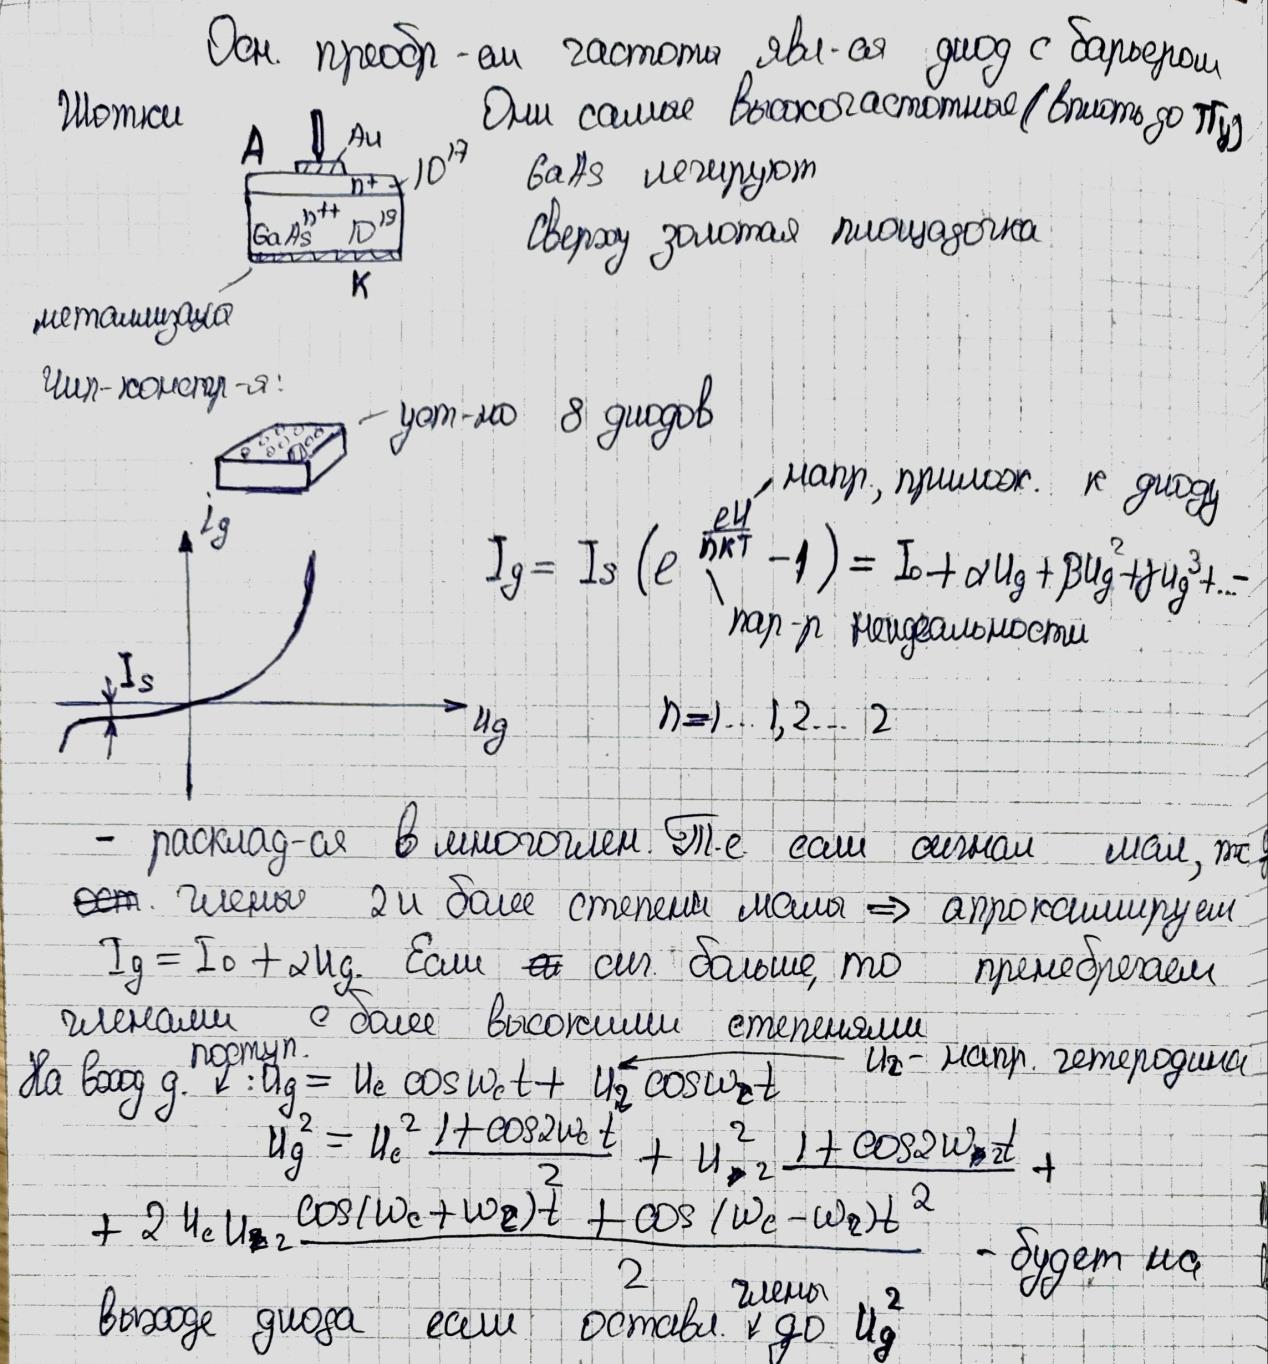 Осн. преобр-ем частоты явл-ся диод с барьером
Шотки Они самые высокочастотные (вплоть до ТГц)
A Au
n+ 10^17 GaAs легируют
GaAs n++ 10^19 Сверху золотая площадочка
K
металлизация
Чип-констр-я:
уст-но 8 диодов
напр., прилож. к диоду
Ig = Is (e^(eU/nkT) - 1) = I0 + αUg + βUg^2 + γUg^3 + ...
пар-р неидеальности
ig
Is
Ug
n=1...1,2...2
- расклад-ся в многочлен. Т.е. если сигнал мал, то
члены 2 и более степени малы => апроксимируем
Ig = I0 + αUg. Если сиг. больше, то пренебрегаем
членами с более высокими степенями
На вход д. поступ. : Ug = Uc cosωct + Uг cosωгt
Uг - напр. гетеродина
Ug^2 = Uc^2 (1+cos2ωct)/2 + Uг^2 (1+cos2ωгt)/2 +
+ 2UcUг (cos(ωc+ωг)t + cos(ωc-ωг)t)/2 - будет на
выходе диода если оставл. члены до Ug^2